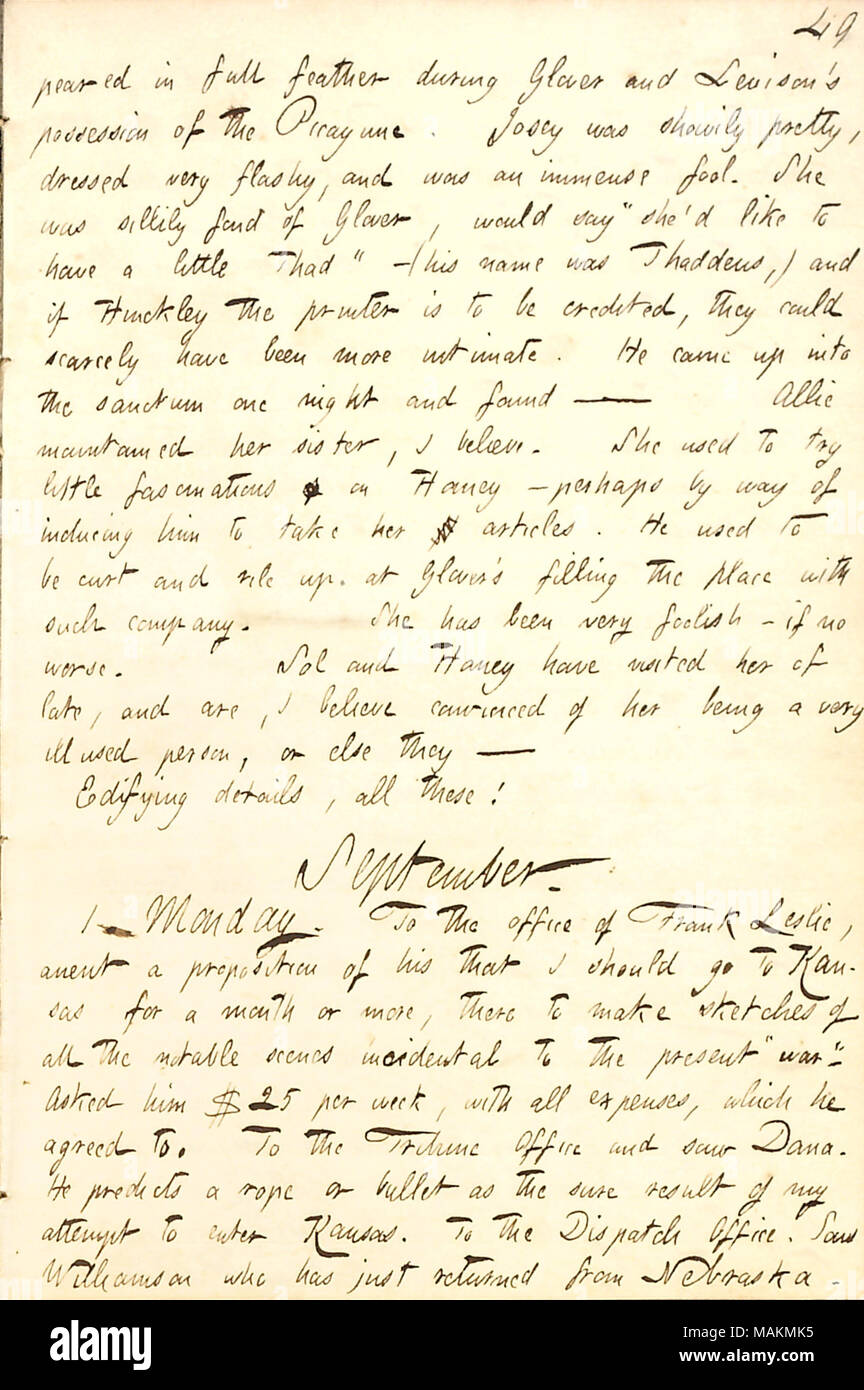 49
peared in full feather during Glover and Levison's
possession of the Picayune. Josey was showily pretty,
dressed very flashy, and was an immense fool. She
was sillily fond of Glover, would say "she'd like to
have a little Thad" - (his name was Thaddeus,) and
if Hinckley the printer is to be credited, they could
scarcely have been more intimate. He came up into
the sanctum one night and found — Allie
maintained her sister, I believe. She used to try
little fascinations on Haney - perhaps by way of
inducing him to take her articles. He used to
be curt and rile up at Glover's filling the place with
such company. She has been very foolish - if no
worse. Sol and Haney have visited her of
late, and are, I believe convinced of her being a very
ill used person, or else they —
Edifying details, all these!
September.
1. Monday. To the office of Frank Leslie,
anent a proposition of his that I should go to Kan-
sas for a month or more, there to make sketches of
all the notable scenes incidental to the present "war".
Asked him $25 per week, with all expenses, which he
agreed to. To the Tribune Office and saw Dana.
He predicts a rope or bullet as the sure result of my
attempt to enter Kansas. To the Dispatch Office. Saw
Williamson who has just returned from Nebraska.
alamy
Image ID: MAKMK5
www.alamy.com